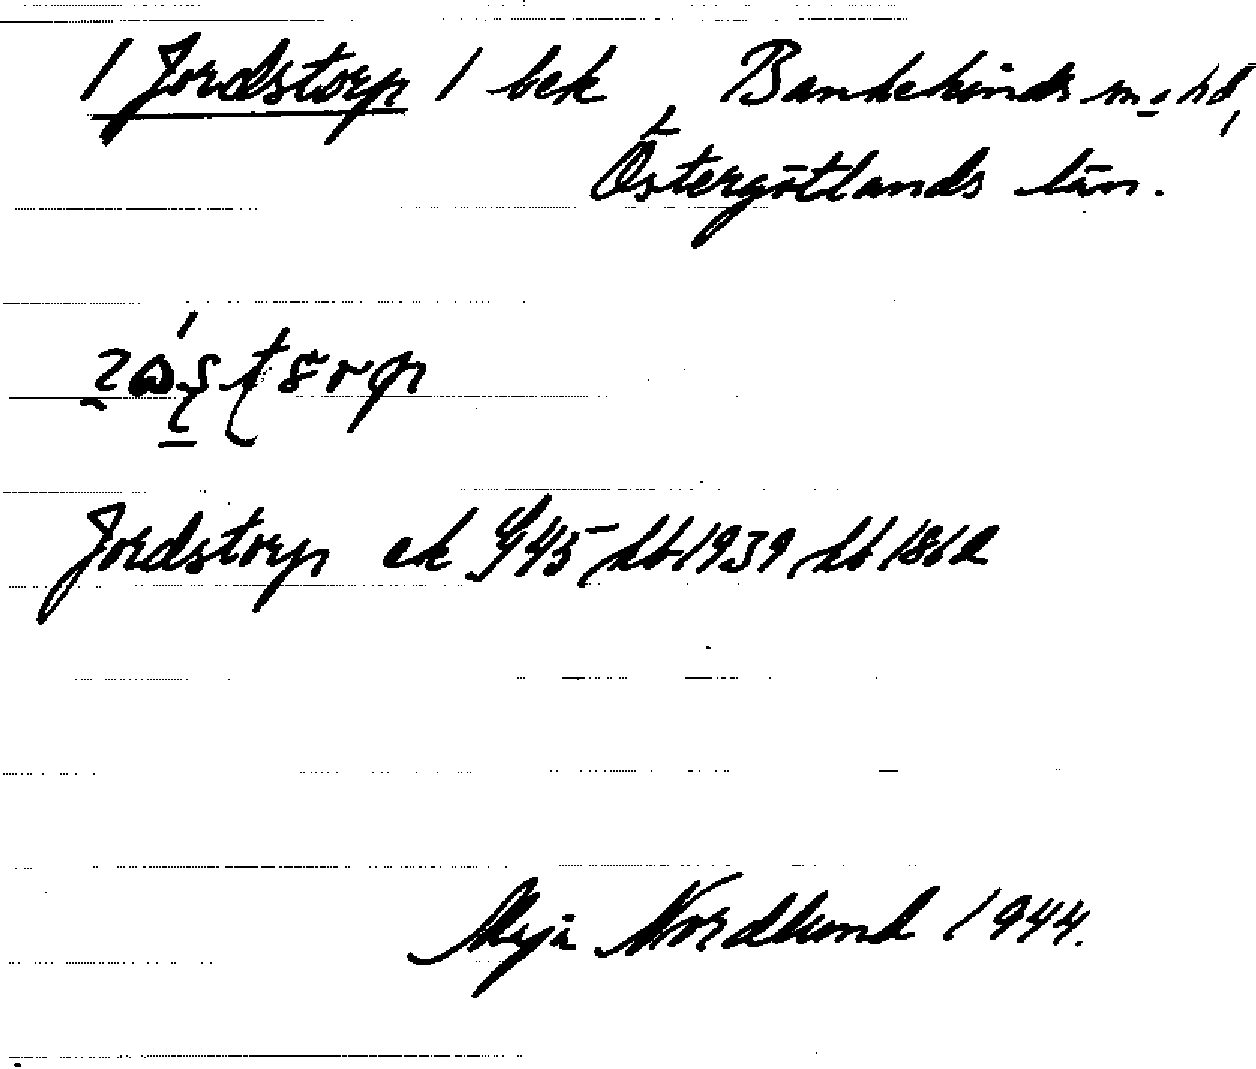 / Jordstorp / bek Bankekinds m. hd,
Östergötlands län.
Jordstorp ek Y45 Jb 1939 Jb 1862
Maja Nordlund 1944.